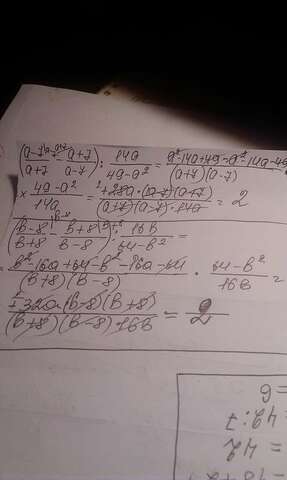 (a-7/a+7 - a+7/a-7) : 14a/49-a² = a²-14a+49-a²-14a-49/(a+7)(a-7)
× 49-a²/14a = +28a·(a-7)(a+7)/(a+7)(a-7)·14a = 2
(b-8/b+8 - b+8/b-8) : 16b/64-b² =
= b²-16a+64-b²-16a-64/(b+8)(b-8) · 64-b²/16b =
+32a(b-8)(b+8)/(b+8)(b-8)·16b = 2
= 6
42:7
= 42